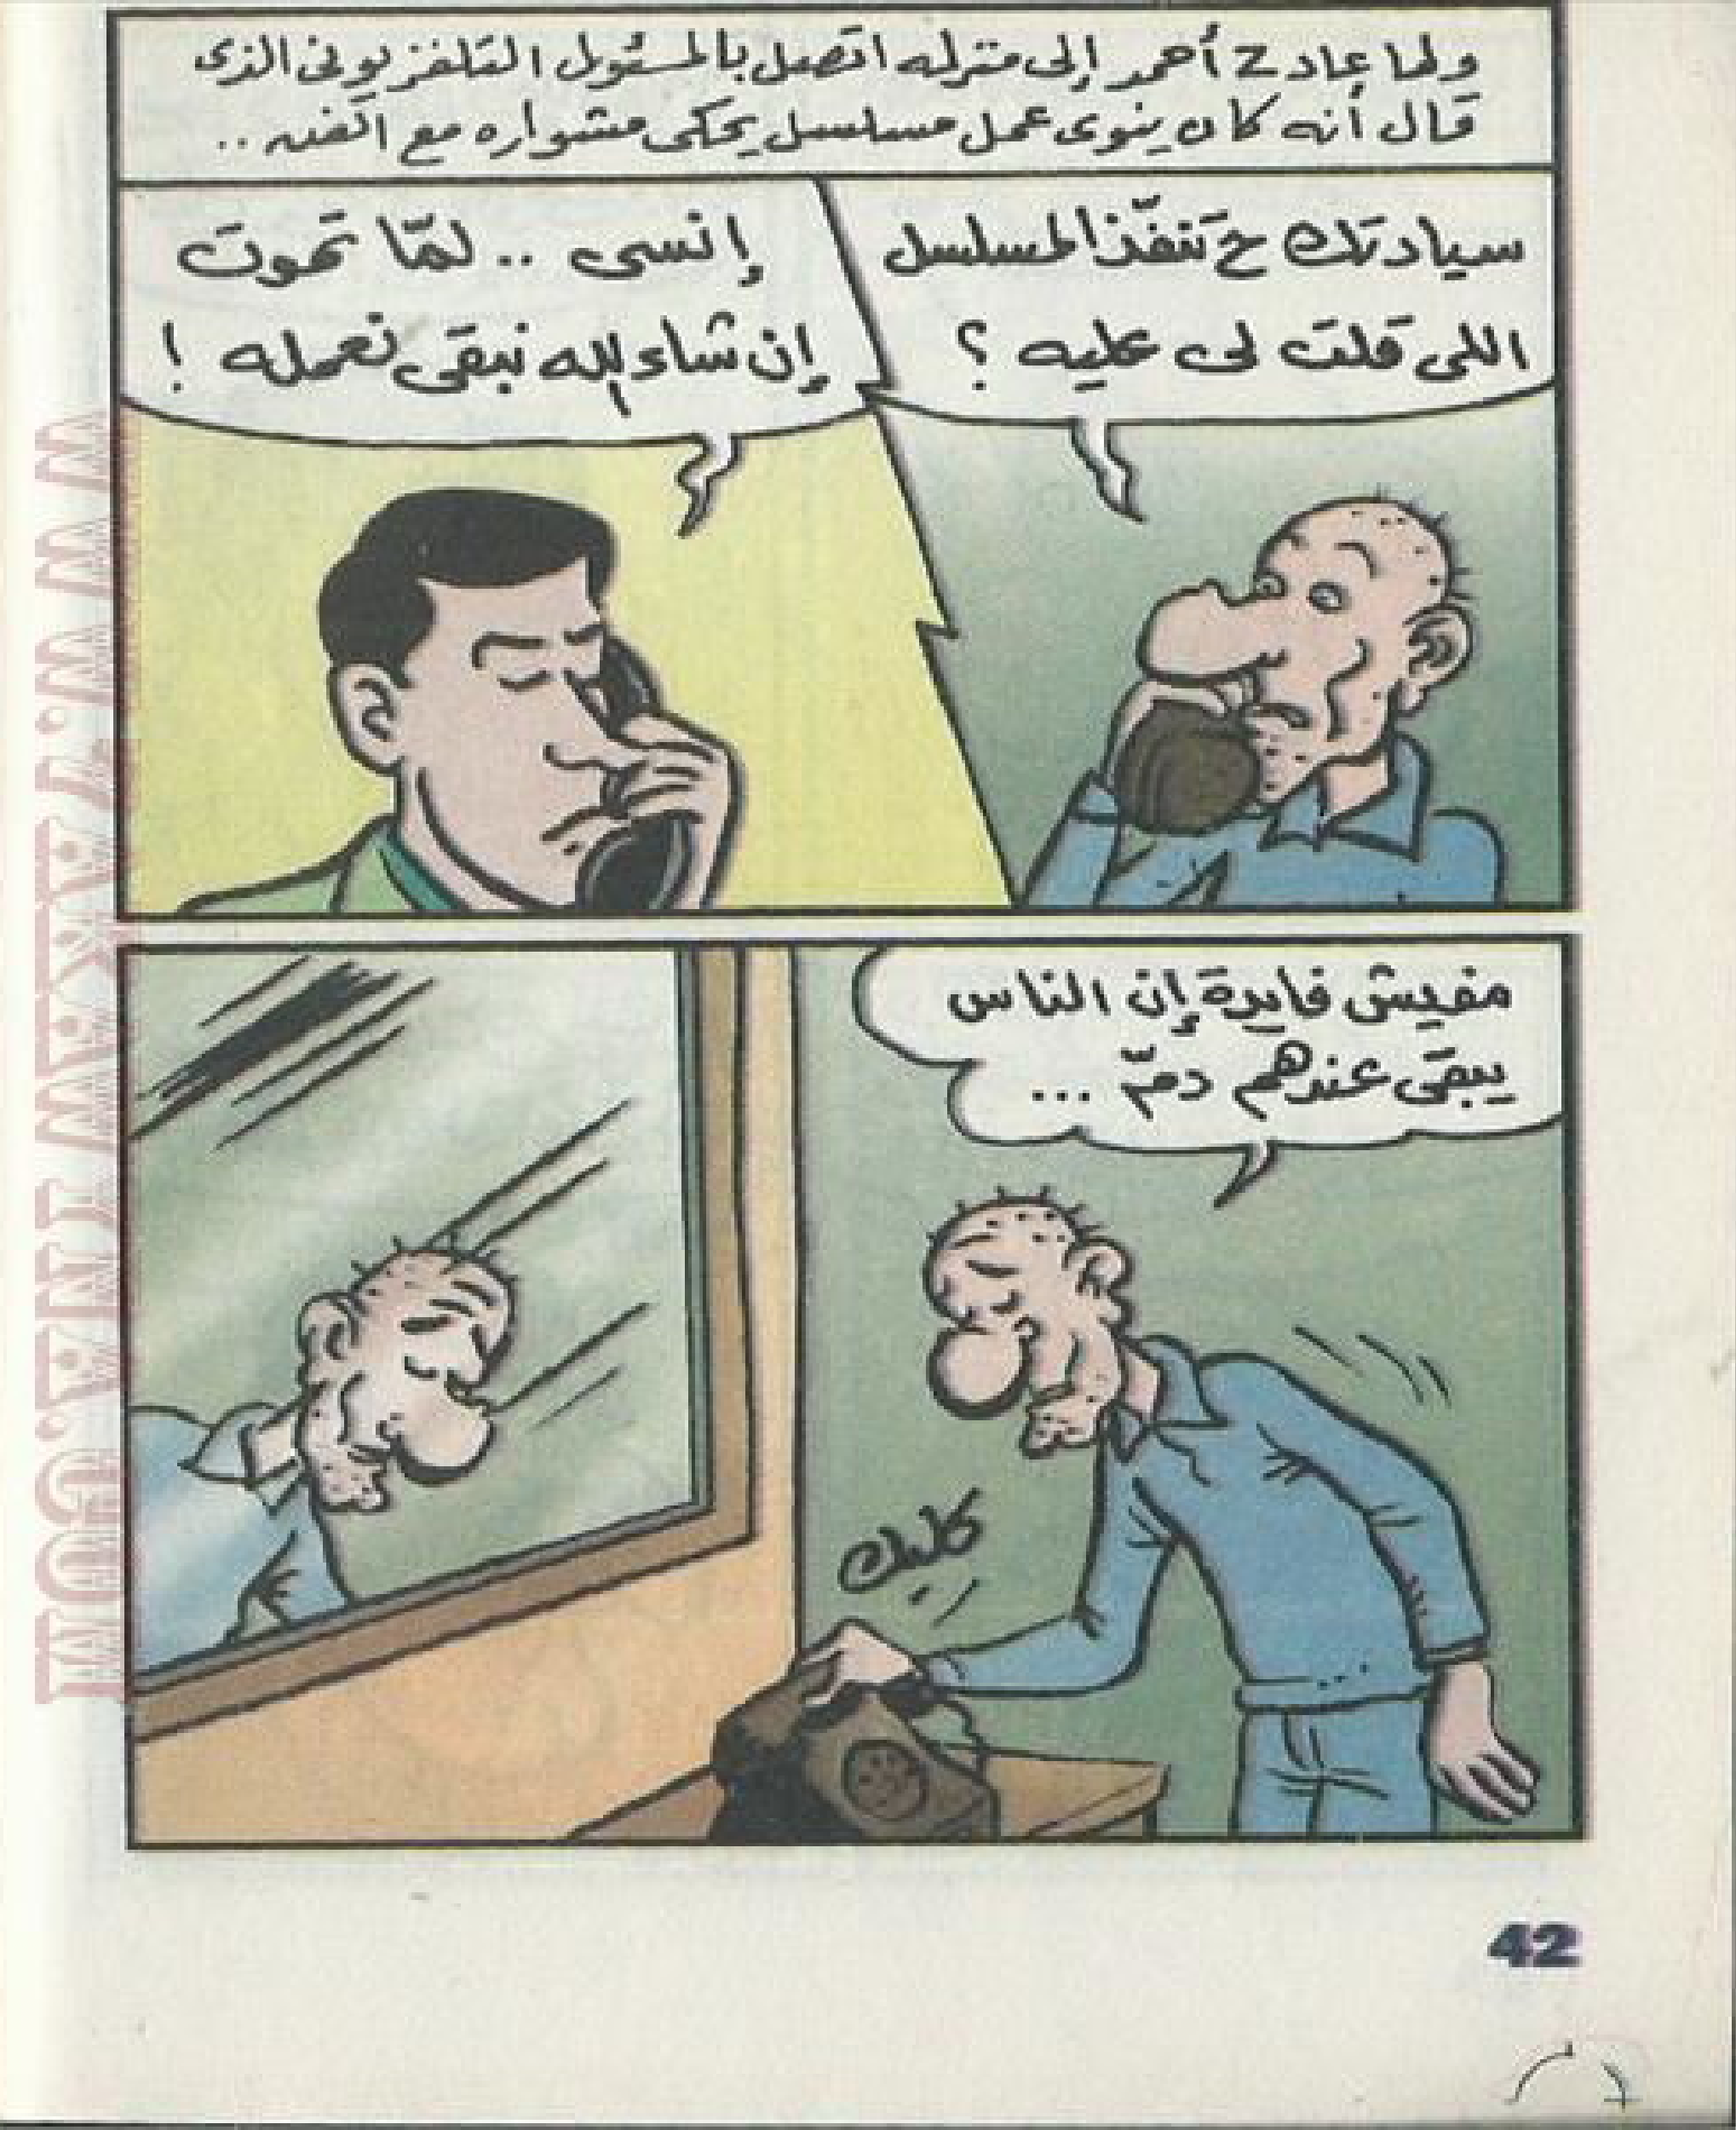 ولما عاد ح أحمد إلى منزله اتصل بالمسئول التلفزيونى الذى
قال أنه كان ينوى عمل مسلسل يحكى مشواره مع الفن ..
سيادتك ح تنفّذ المسلسل
اللى قلت لى عليه ؟
إنسى .. لمّا تموت
إن شاء الله نبقى نعمله !
مفيش فايدة إن الناس
يبقى عندهم دمّ ...
كليك
42